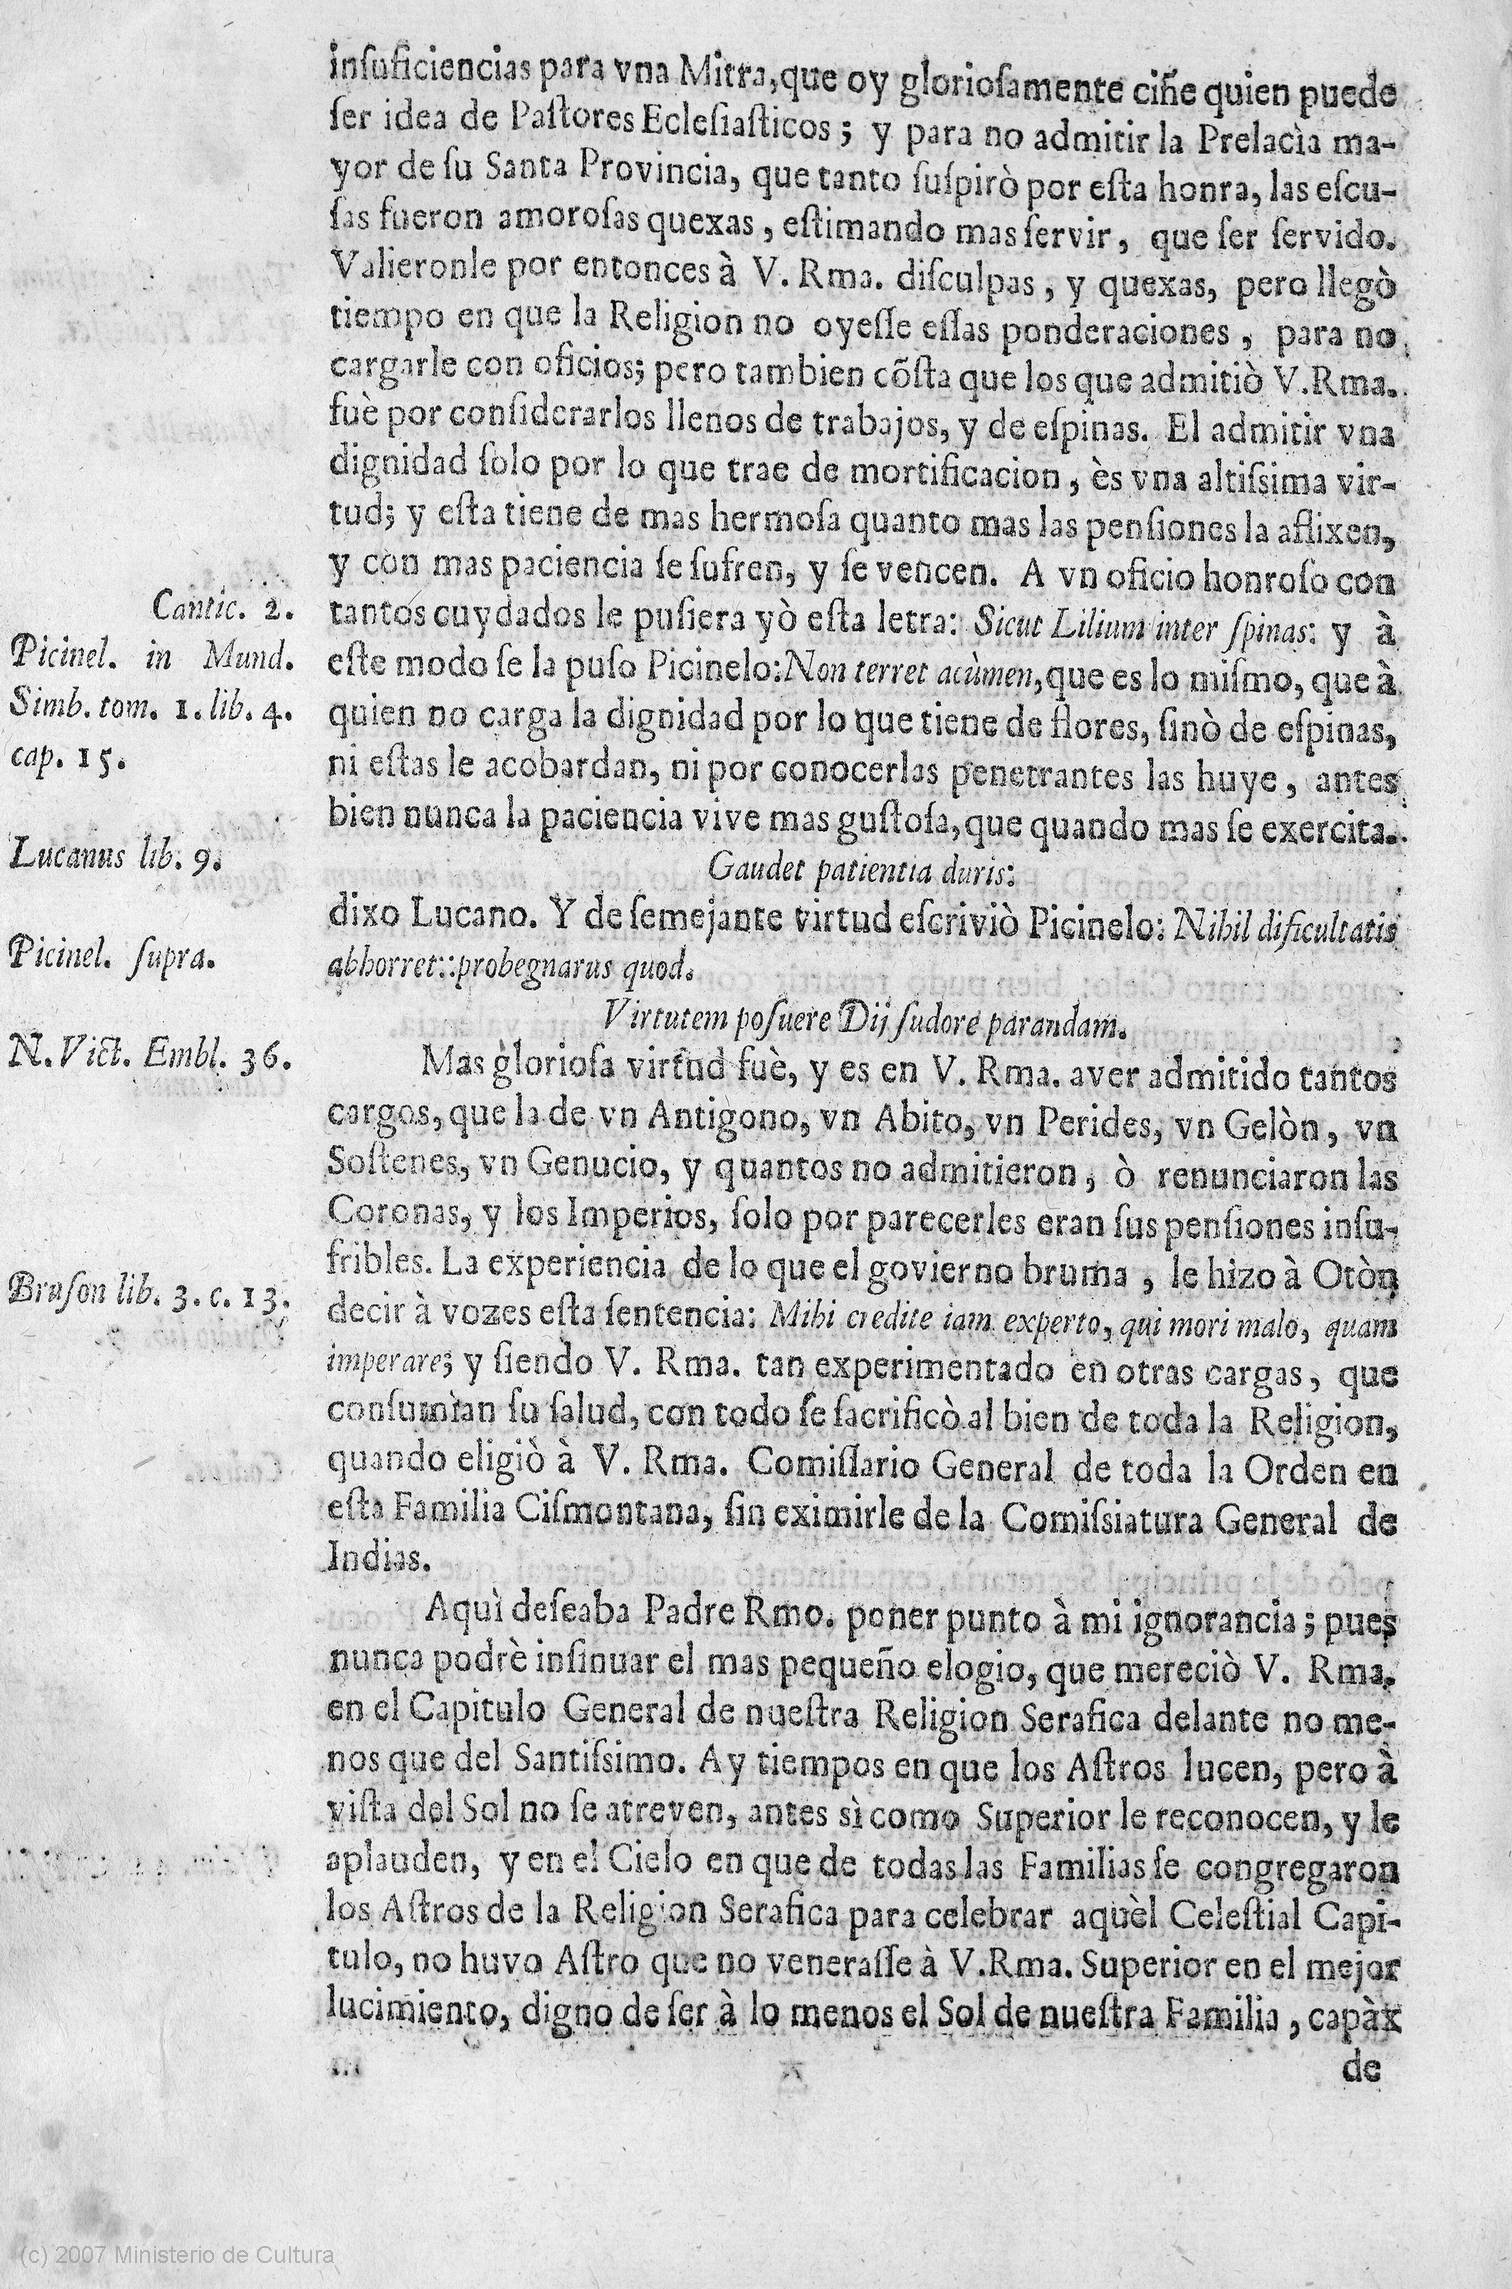 inſuficiencias para vna Mitra, que oy glorioſamente ciñe quien puede
ſer idea de Paſtores Ecleſiaſticos; y para no admitir la Prelacìa ma-
yor de ſu Santa Provincia, que tanto ſuſpirò por eſta honra, las eſcu-
ſas fueron amoroſas quexas, eſtimando mas ſervir, que ſer ſervido.
Valieronle por entonces à V. Rma. diſculpas, y quexas, pero llegò
tiempo en que la Religion no oyeſſe eſſas ponderaciones, para no
cargarle con oficios; pero tambien cõſta que los que admitiò V. Rma.
fuè por conſiderarlos llenos de trabajos, y de eſpinas. El admitir vna
dignidad ſolo por lo que trae de mortificacion, ès vna altiſsima vir-
tud; y eſta tiene de mas hermoſa quanto mas las penſiones la aflixen,
y con mas paciencia ſe ſufren, y ſe vencen. A vn oficio honroſo con
Cantic. 2.
tantos cuydados le puſiera yò eſta letra: Sicut Lilium inter ſpinas: y à
Picinel. in Mund.
eſte modo ſe la puſo Picinelo: Non terret acùmen, que es lo miſmo, que à
Simb. tom. 1. lib. 4.
quien no carga la dignidad por lo que tiene de flores, ſinò de eſpinas,
cap. 15.
ni eſtas le acobardan, ni por conocerlas penetrantes las huye, antes
bien nunca la paciencia vive mas guſtoſa, que quando mas ſe exercita.
Lucanus lib. 9.
Gaudet patientia duris:
dixo Lucano. Y de ſemejante virtud eſcriviò Picinelo: Nihil dificultatis
Picinel. ſupra.
abhorret::probegnarus quod.
Virtutem poſuere Dij ſudore parandam.
N. Vict. Embl. 36.
Mas glorioſa virtud fuè, y es en V. Rma. aver admitido tantos
cargos, que la de vn Antigono, vn Abito, vn Perides, vn Gelòn, vn
Soſtenes, vn Genucio, y quantos no admitieron, ò renunciaron las
Coronas, y los Imperios, ſolo por parecerles eran ſus penſiones inſu-
fribles. La experiencia de lo que el govierno bruma, le hizo à Otòn
Bruſon lib. 3. c. 13.
decir à vozes eſta ſentencia: Mihi credite iam experto, qui mori malo, quam
imperare; y ſiendo V. Rma. tan experimentado en otras cargas, que
conſumìan ſu ſalud, con todo ſe ſacrificò al bien de toda la Religion,
quando eligiò à V. Rma. Comiſſario General de toda la Orden en
eſta Familia Ciſmontana, ſin eximirle de la Comiſsiatura General de
Indias.
Aquì deſeaba Padre Rmo. poner punto à mi ignorancia; pues
nunca podrè inſinuar el mas pequeño elogio, que mereciò V. Rma.
en el Capitulo General de nueſtra Religion Serafica delante no me-
nos que del Santiſsimo. Ay tiempos en que los Aſtros lucen, pero à
viſta del Sol no ſe atreven, antes sì como Superior le reconocen, y le
aplauden, y en el Cielo en que de todas las Familias ſe congregaron
los Aſtros de la Religion Serafica para celebrar aquèl Celeſtial Capi-
tulo, no huvo Aſtro que no veneraſſe à V. Rma. Superior en el mejor
lucimiento, digno de ſer à lo menos el Sol de nueſtra Familia, capàx
de
(c) 2007 Ministerio de Cultura